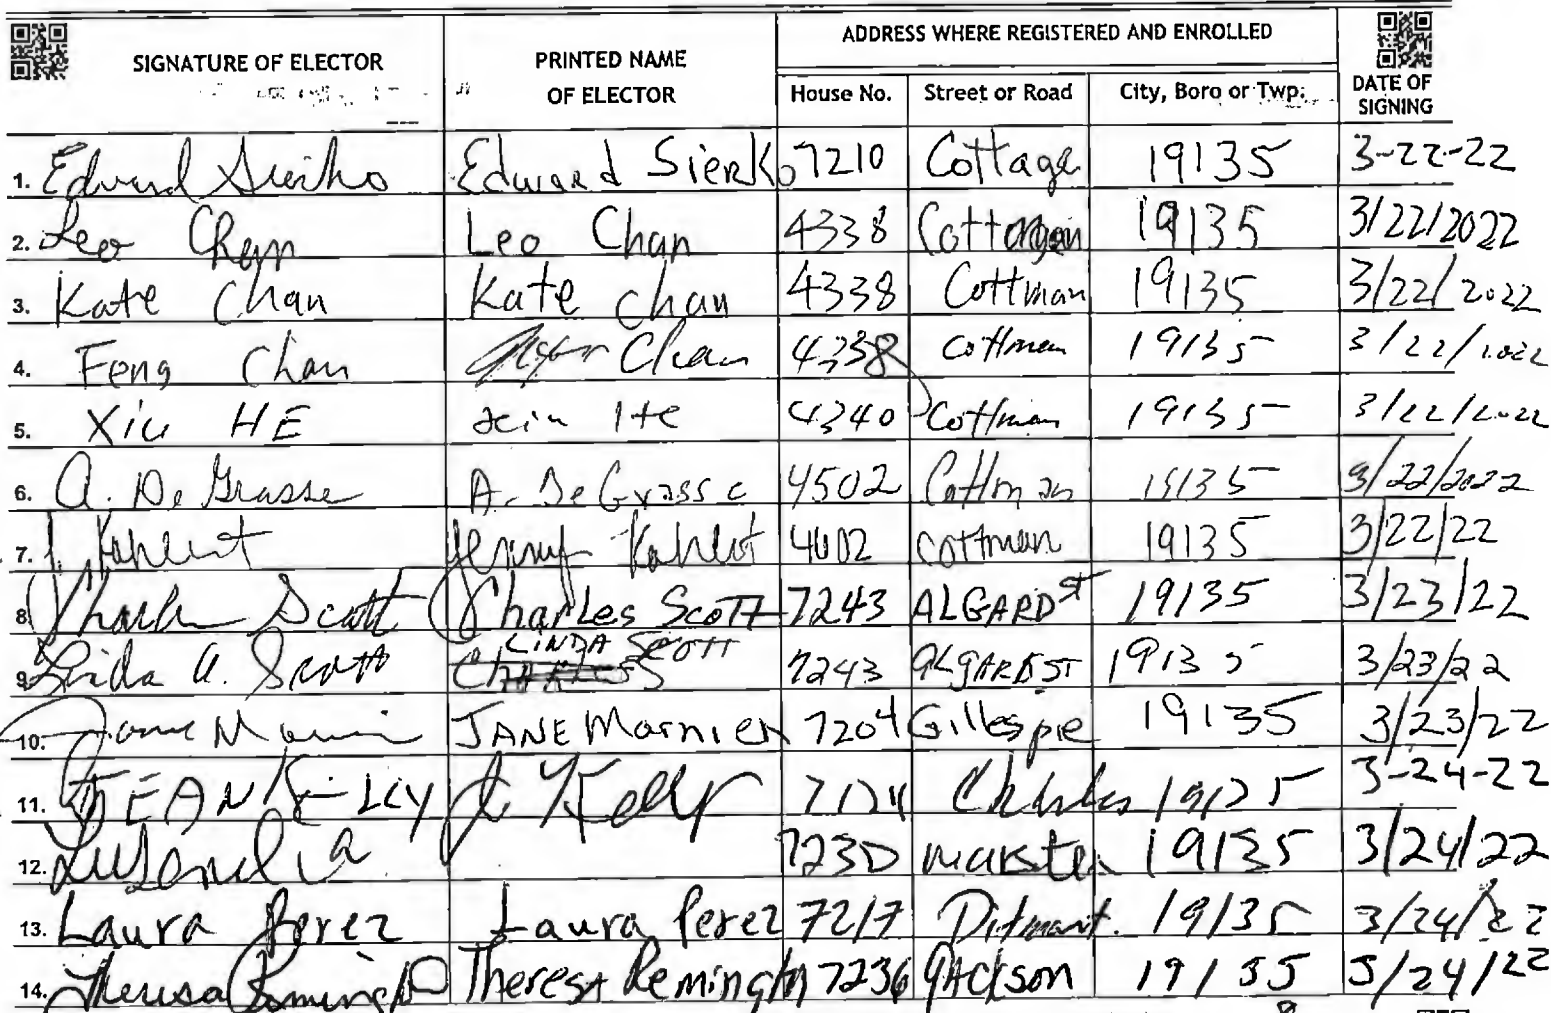 SIGNATURE OF ELECTOR PRINTED NAME OF ELECTOR ADDRESS WHERE REGISTERED AND ENROLLED
House No. Street or Road City, Boro or Twp. DATE OF SIGNING
1. Edward Sierko Edward Sierko 7210 Cottage 19135 3-22-22
2. Leo Chan Leo Chan 4338 Cottman 19135 3/22/2022
3. Kate Chan Kate Chan 4338 Cottman 19135 3/22/2022
4. Feng Chan Chan 4338 Cottman 19135 3/22/2022
5. Xiu HE He 4340 Cottman 19135 3/22/2022
6. A. DeGrasse A. DeGrasse 4502 Cottman 19135 3/22/2022
7. 4602 Cottman 19135 3/22/22
8. Charles Scott Charles Scott 7243 ALGARD ST 19135 3/23/22
9. Linda A. Scott LINDA SCOTT 7243 ALGARD ST 19135 3/23/22
10. Jane JANE Marnien 7204 Gillespie 19135 3/23/22
11. JEAN KELLY J Kelly 19135 3-24-22
12. 7230 19135 3/24/22
13. Laura Perez Laura Perez 7217 Ditman 19135 3/24/22
14. Theresa Remington Theresa Remington 7236 Jackson 19135 3/24/22